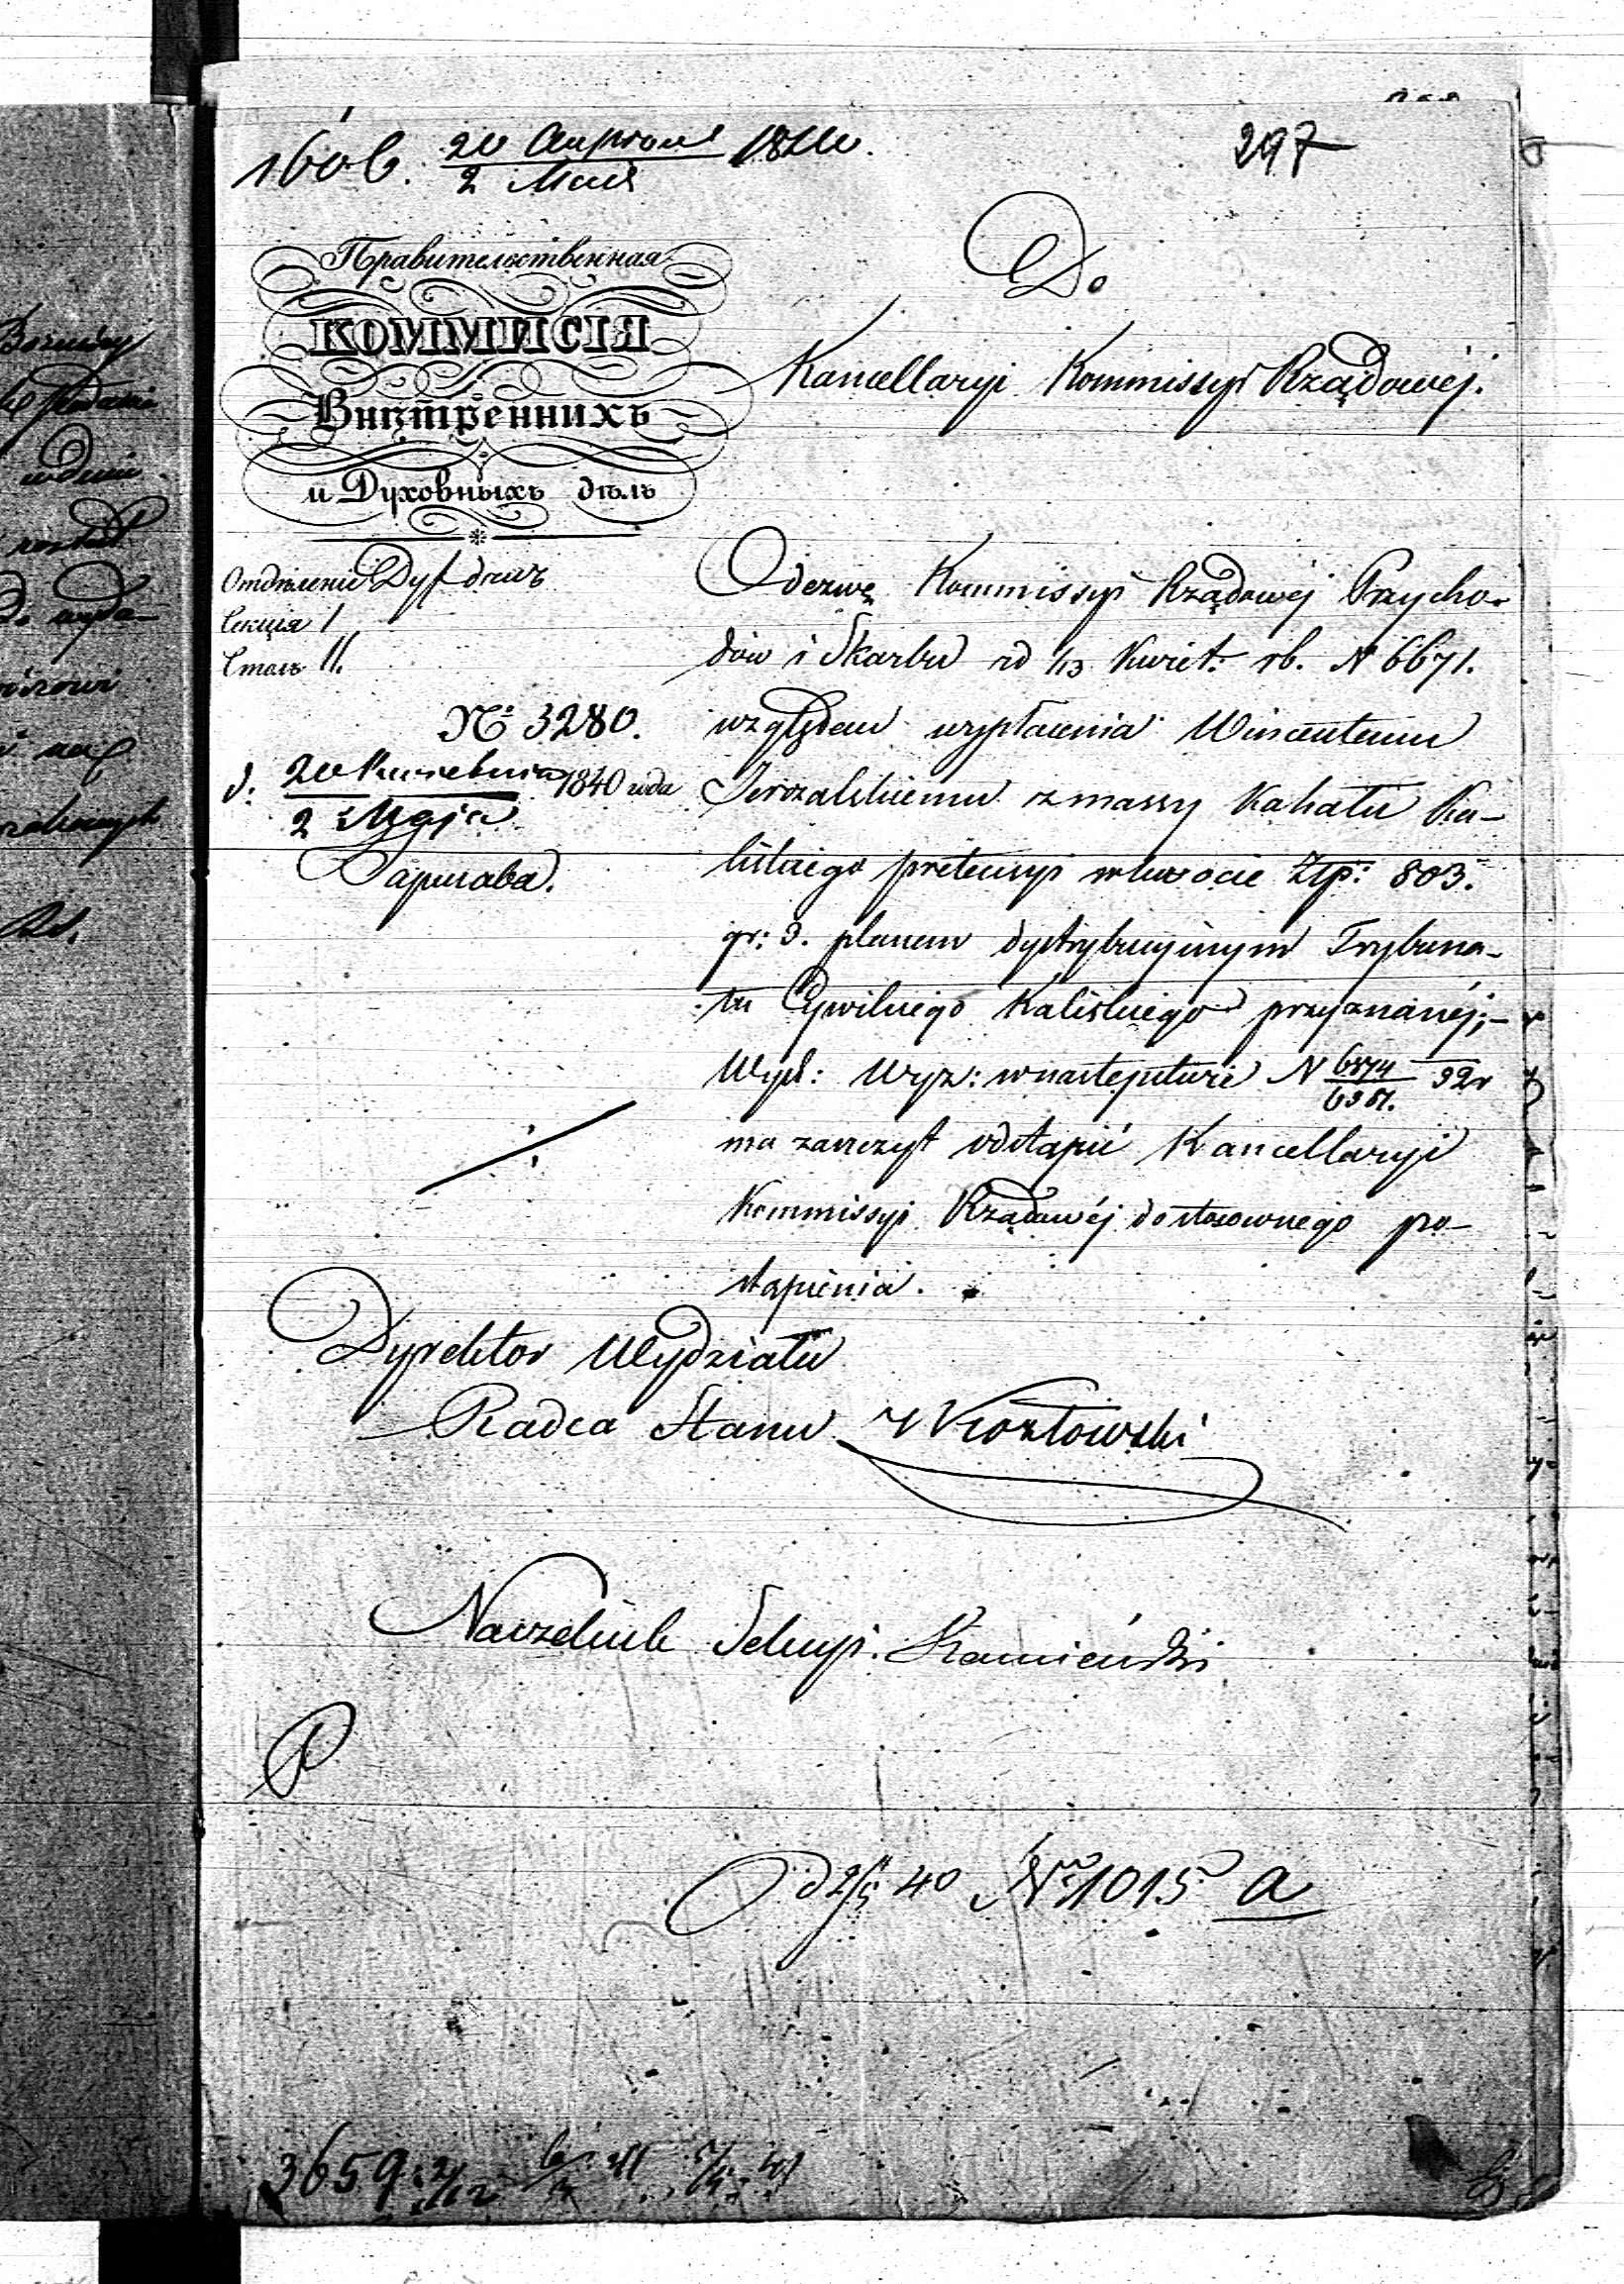 1606. 20 Апреля / 2 Мая 1840.
297
Правительственная
КОММИСІЯ
Внутреннихъ
и Духовныхъ дѣлъ
Отдѣленіе Дух
Секція I
Столъ II.
№ 3280.
d: 20 Kwietnia / 2 Maja 1840 года
Варшава.
Do
Kancellaryi Kommissyi Rządowéj.
Odezwę Kommissyi Rządowéj Przycho-
dów i Skarbu od 1/13 Kwiet: rb. N 6671.
względem wypłacenia Wincentemu
Jerozalskiemu z massy Kahału Ka-
liskiego pretensyi w kwocie Złp: 803.
gr: 3. planem dystrybucyinym Trybuna-
łu Cywilnego Kaliskiego przyznanéj;-
Wyd: Wyz: w następstwie N
ma zaszczyt odstąpić Kancellaryi
Kommissyi Rządowéj do stosownego po-
stąpienia.
Dyrektor Wydziału
Radca Stanu Kozłowski
Naczelnik Sekcyi. Kamieński
Od 2/5 40 № 1015 a
3659: